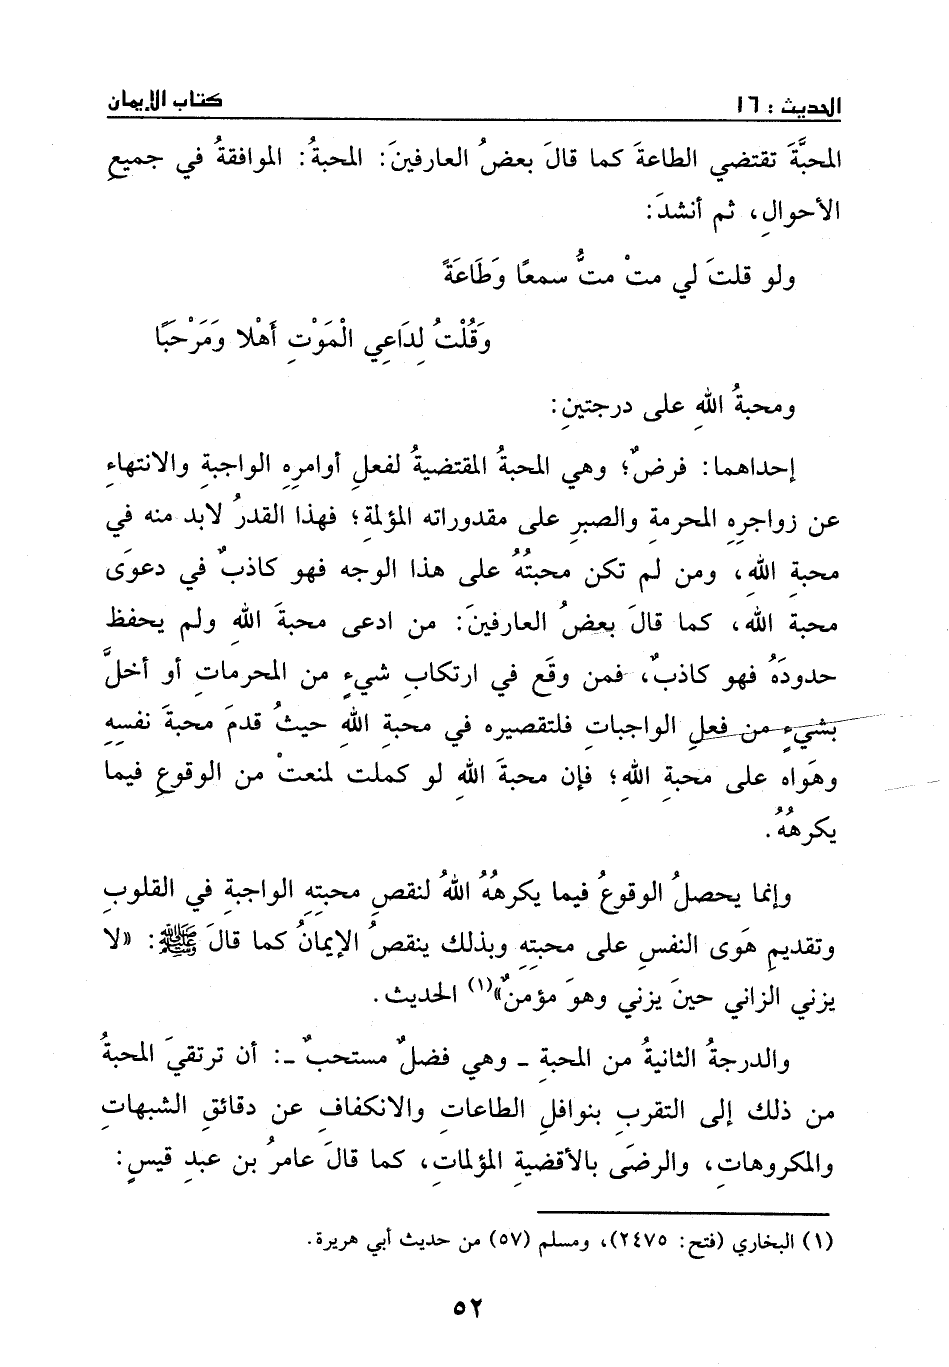 الحديث : ١٦
كتاب الإيمان
المحبَّةَ تقتضي الطاعةَ كما قالَ بعضُ العارفينَ: المحبةُ: الموافقةُ في جميعِ
الأحوالِ، ثم أنشدَ:
ولو قلتَ لي متْ متُّ سمعًا وَطَاعَةً
وَقُلْتُ لِدَاعِي الْمَوْتِ أَهْلا وَمَرْحَبًا
ومحبةُ اللهِ على درجتينِ:
إحداهما: فرضٌ؛ وهي المحبةُ المقتضيةُ لفعلِ أوامرِهِ الواجبةِ والانتهاءِ
عن زواجرِهِ المحرمةِ والصبرِ على مقدوراته المؤلمةِ؛ فهذا القدرُ لابد منه في
محبةِ اللهِ، ومن لم تكن محبتُهُ على هذا الوجه فهو كاذبٌ في دعوَى
محبةِ اللهِ، كما قالَ بعضُ العارفينَ: من ادعى محبةَ اللهِ ولم يحفظ
حدودَهُ فهو كاذبٌ، فمن وقَع في ارتكابِ شيءٍ من المحرماتِ أو أخلَّ
بشيءٍ من فعلِ الواجباتِ فلتقصيره في محبةِ اللهِ حيثُ قدمَ محبةَ نفسِهِ
وهَواه على محبةِ اللهِ؛ فإن محبةَ اللهِ لو كملت لمنعتْ من الوقوعِ فيما
يكرهُهُ.
وإنما يحصلُ الوقوعُ فيما يكرهُهُ اللهُ لنقصِ محبتِهِ الواجبةِ في القلوبِ
وتقديمِ هَوى النفسِ على محبتِهِ وبذلك ينقصُ الإيمانُ كما قالَ ﷺ: «لا
يزني الزاني حينَ يزني وهوَ مؤمنٌ»(١) الحديث.
والدرجةُ الثانيةُ من المحبةِ ـ وهي فضلٌ مستحبٌ ـ: أن ترتقيَ المحبةُ
من ذلك إلى التقربِ بنوافلِ الطاعاتِ والانكفافِ عن دقائقِ الشبهاتِ
والمكروهاتِ، والرضَى بالأقضيةِ المؤلماتِ، كما قالَ عامرُ بن عبدِ قيسٍ:
(١) البخاري (فتح: ٢٤٧٥)، ومسلم (٥٧) من حديث أبي هريرة.
٥٢